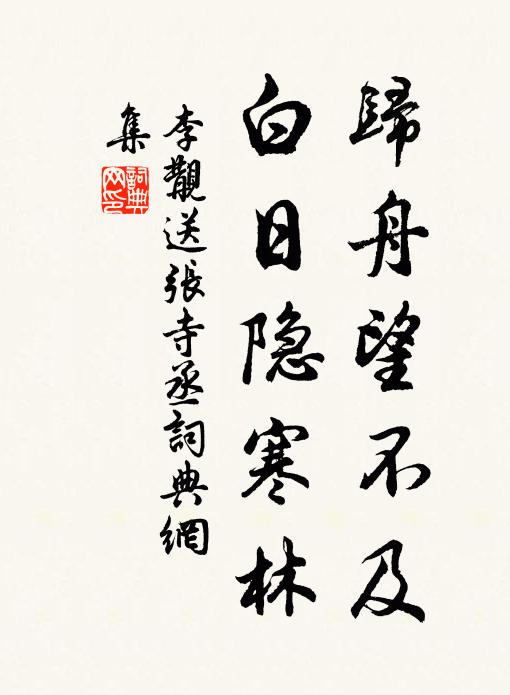 歸舟望不及
白日隐寒林
李觀送張寺丞詞典網
集
詞典
网印